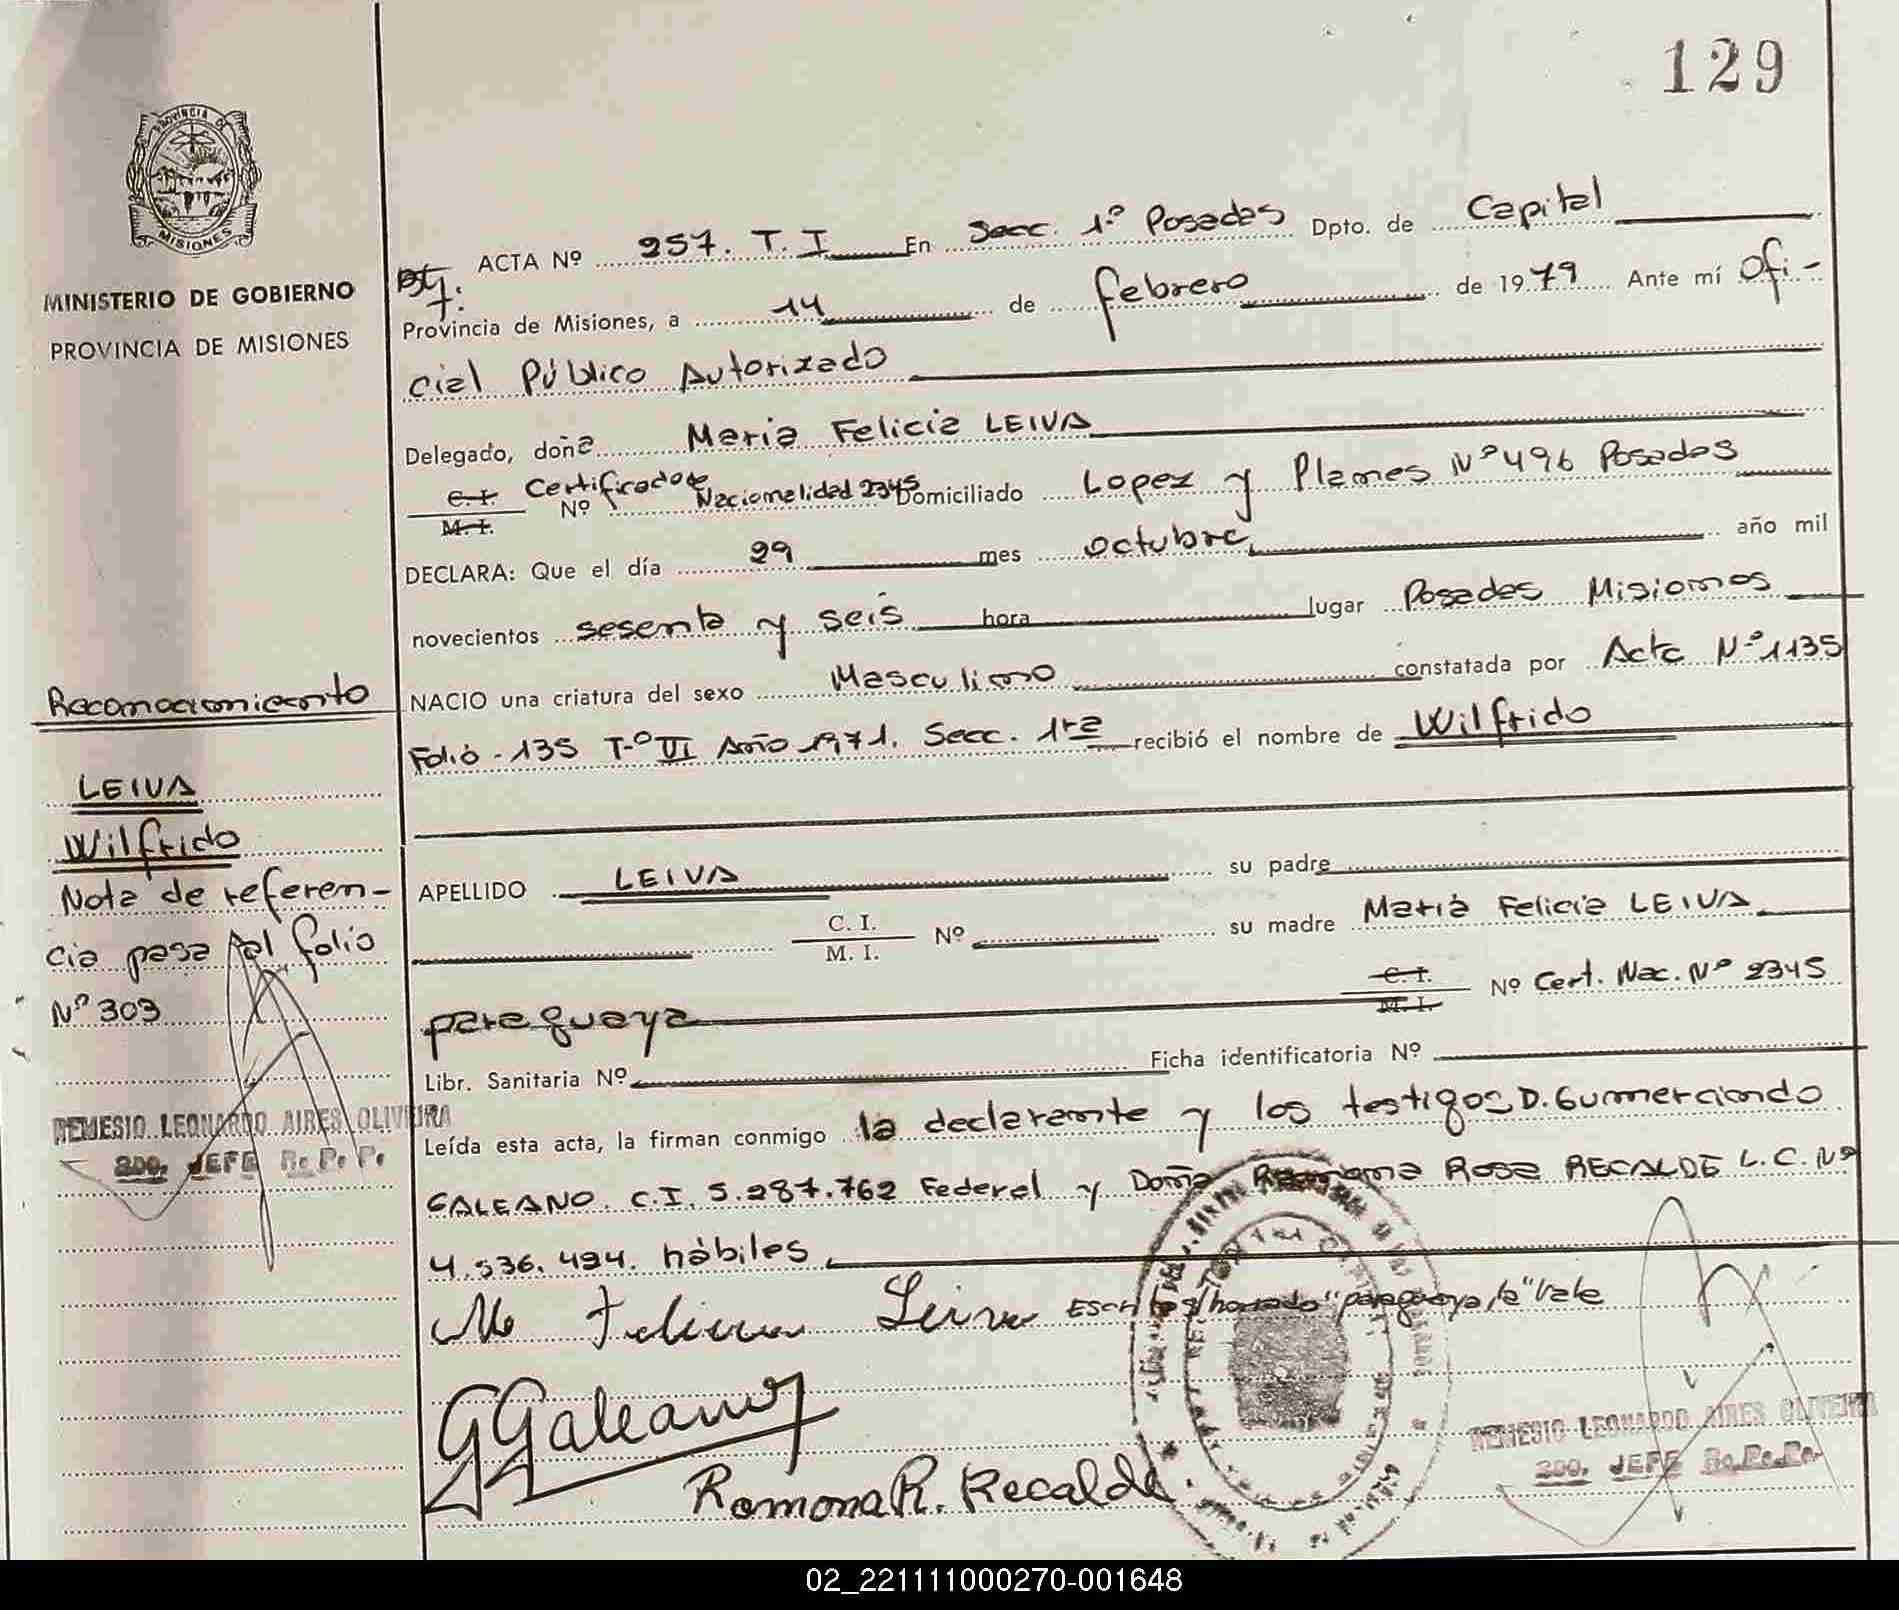 129
PROVINCIA DE
MISIONES
MINISTERIO DE GOBIERNO
PROVINCIA DE MISIONES
ACTA Nº 257. T. I En Secc. 1º Posadas Dpto. de Capital
Provincia de Misiones, a 14 de febrero de 1979 Ante mí Ofi-
cial Público Autorizado
Delegado, doña Maria Felicia LEIVA
C. I. M. I. Certificado de Nº Nacionalidad 2345 Domiciliado Lopez y Planes Nº 496 Posadas
DECLARA: Que el día 29 mes octubre, año mil
novecientos sesenta y seis hora lugar Posadas Misiones
NACIO una criatura del sexo Masculino constatada por Acta Nº 1135
Folio - 135 Tº VI Año 1971. Secc. 1ra recibió el nombre de Wilfrido
Reconocimiento
LEIVA
Wilfrido
Nota de referen-
cia pasa al folio
Nº 303
REMESIO LEONARDO AIRES OLIVEIRA
2do. JEFE R. P. P.
APELLIDO LEIVA su padre
C. I. M. I. Nº su madre Maria Felicia LEIVA
C. I. M. I. Nº Cert. Nac. Nº 2345
paraguaya
Libr. Sanitaria Nº Ficha identificatoria Nº
Leída esta acta, la firman conmigo la declarante y los testigos D. Gumercindo
GALEANO. C. I. 5.287.762 Federal y Doña Ramona Rosa RECALDE L. C. Nº
4.536.494. hábiles
M Felicia Leiva Escrito s/borrado "paraguaya, la" Vale
G Galeano
Ramona R. Recalde
REMESIO LEONARDO AIRES OLIVEIRA
2do. JEFE R. P. P.
02_221111000270-001648